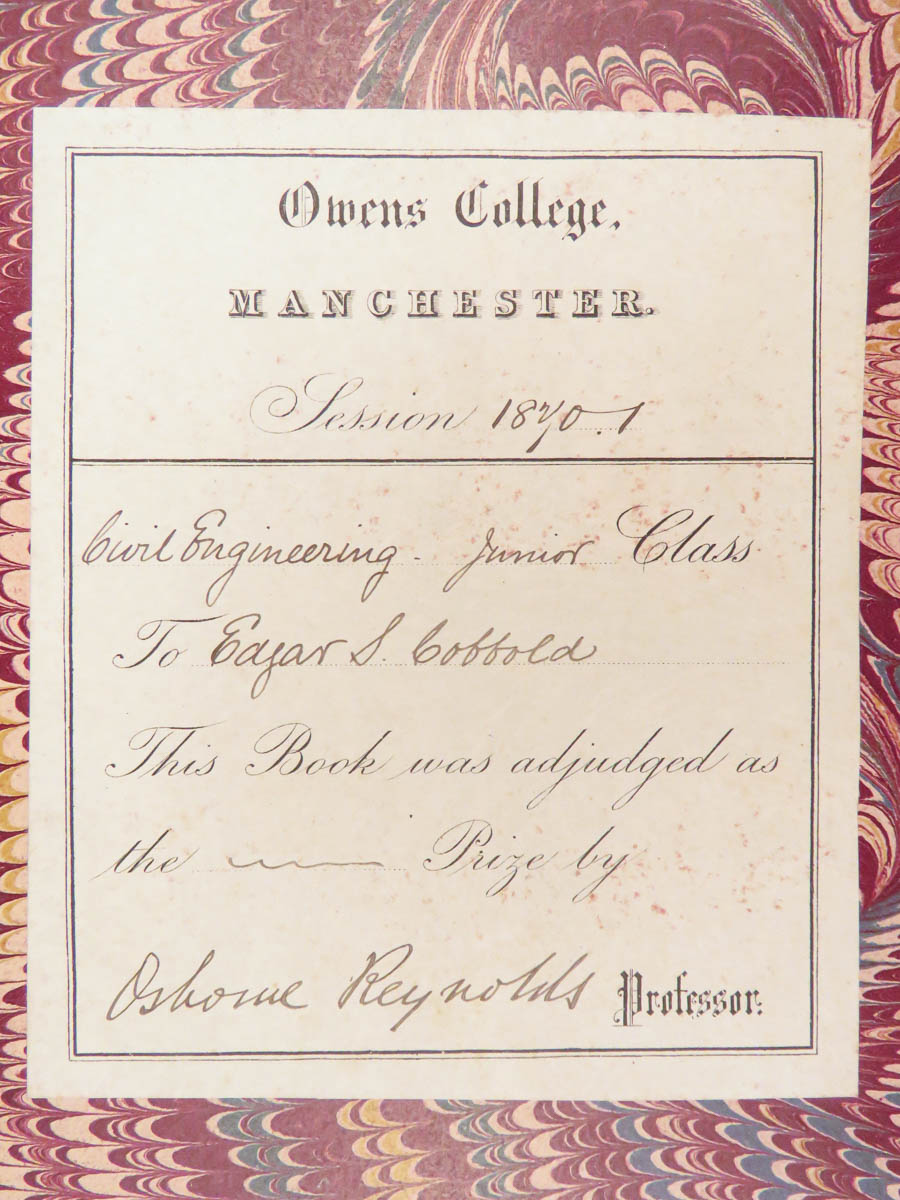 Owens College,
MANCHESTER.
Session 1870.1
Civil Engineering - Junior Class
To Edgar S. Cobbold
This Book was adjudged as
the — Prize by
Osborne Reynolds Professor.